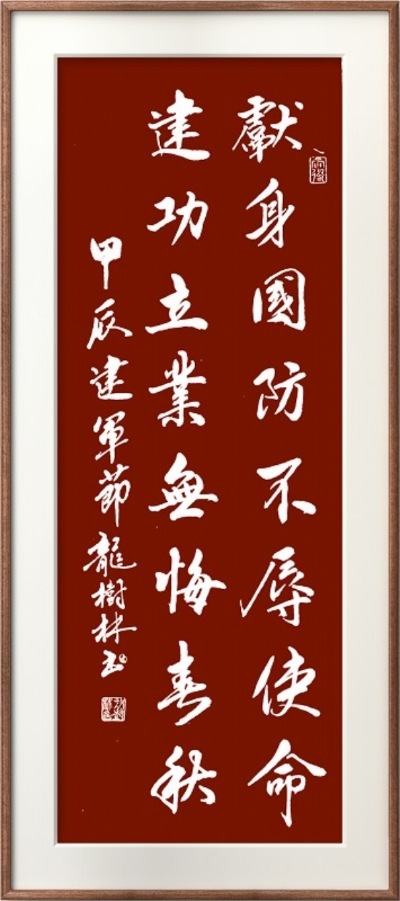 獻身國防不辱使命
建功立業無悔春秋
甲辰建軍節龍樹林